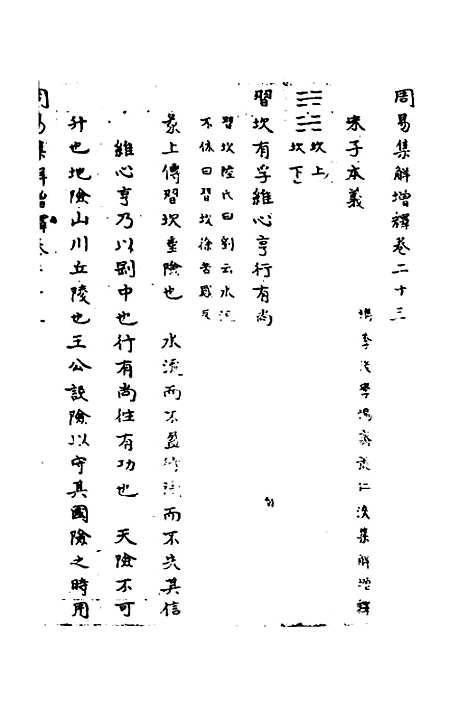 周易集解增釋卷二十三
後學 仁浹集解增釋
朱子本義
坎上
坎下
習坎有孚維心亨行有尚
習坎陸氏曰劉云水流
不休曰習坎徐苦感反
彖上傳習坎重險也 水流而不盈行險而不失其信
維心亨乃以剛中也行有尚往有功也 天險不可
升也地險山川丘陵也王公設險以守其國險之時用
周易集解增釋卷二十三